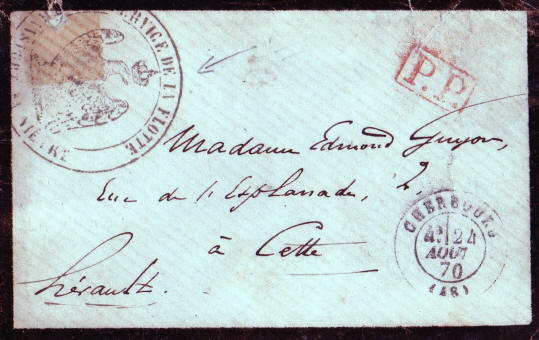 SERVICE DE LA FLOTTE
P.P.
Madame Edmond Guyon,
Rue de l'Esplanade, 2,
à Cette
Hérault.
CHERBOURG
24
AOUT
70
(48)